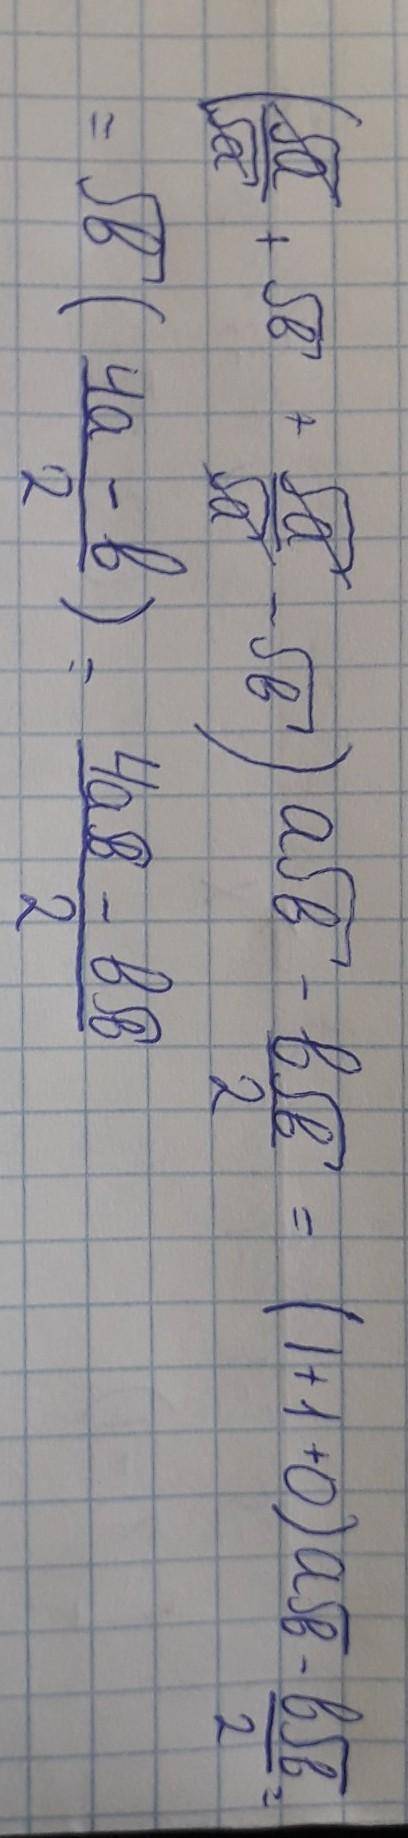 (√a/√a + √b + √a/√a - √b) a√b - b√b/2 = (1+1+0)a√b - b√b/2 =
= √b (4a - b/2) = 4a√b - b√b/2